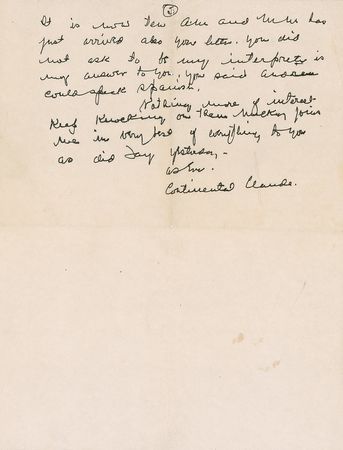 5
It is now ten a.m. and M.M. has
just arrived also your letter. You did
not ask to be my interpreter is
my answer to you, you said
could speak Spanish.
Nothing more of interest
Keep Knocking on them Mickey joins
me in very best of everything to you
as did Jay yesterday.
as Ever.
Continental Claude.